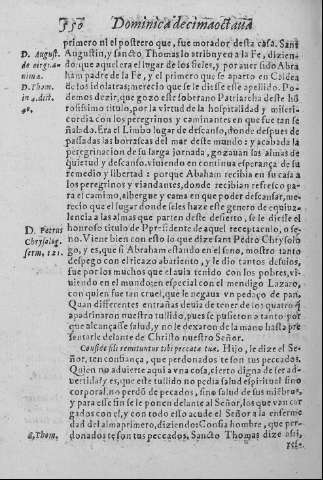 550 Dominica decima octaua
primero ni el postrero que, fue morador desta casa. Sant
D. August. Augustin, y sancto Thomas lo atribuyen a la Fe, dizien-
do: que aquel era el lugar de los fieles, y por auer sido Abra
ham padre de la Fe, y el primero que se aparto en Caldea
D. Thom. de los idolatras; merecio que se le diesse esse apellido. Po-
in 4. dist. demos dezir, que gozo este soberano Patriarcha deste ho
45. rosissimo titulo, por la virtud de la hospitalidad y miseri-
cordia con los peregrinos y caminantes en que fue tan se
ñalado. Era el Limbo lugar de descanso, donde despues de
passadas las borrascas del mar deste mundo: y acabada la
peregrinacion de su larga jornada, gozauan las almas de
quietud y descanso, viuiendo en continua esperança de su
remedio y libertad: porque Abaham recibia en su casa a
los peregrinos y viandantes, donde recibian refresco pa-
ra el camino, albergue y cama en que poder descansar, me-
recio que el lugar donde se les haze este genero de equiua-
lencia a las almas que parten deste desierto, se le diesse el
D. Petrus honroso titulo de Presidente de aquel receptaculo, o se-
Chrysolog. no. Viene bien con esto lo que dize sant Pedro Chrysolo
serm, 121. go, y es, que si Abraham estando en el seno, mostro tanto
despego con el ricazo abariento, y le dio tantos desuios,
fue por los muchos que el auia tenido con los pobres, vi-
uiendo en el mundo: en especial con el mendigo Lazaro,
con quien fue tan cruel, que le negaua vn pedaço de pan.
Quan differentes entrañas deuia de tener de los quatro q
apadrinaron nuestro tullido, pues se pusieron a tanto por
que alcançasse salud, y no le dexaron de la mano hasta pre
sentarle delante de Christo nuestro Señor.
Confide fili remittuntur tibi peccata tua. Hijo, le dize el Se-
ñor, ten confiança, que perdonados te son tus peccados.
Quien no aduierte aqui a vna cosa, cierto digna de ser ad-
uertida? y es, que este tullido no pedia salud espiritual sino
corporal, no perdõ de pecados, sino salud de sus miẽbros,
y para esse fin se le ponen delante al Señor, los que van car
gados con el, y con todo esso acude el Señor a la enferme
dad del alma primero, diziendo: Confia hombre, que per-
S. Thom. donados te son tus peccados. Sancto Thomas dize assi,